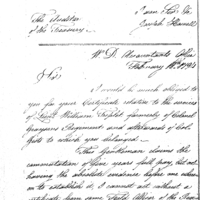 The Auditor
of the Treasury
I am Sir &c
Joseph Howell
W. D. Accountants Office
February 18th 179
Sir
I would be much obliged to
you for your Certificate relative to the services
of William formerly of Colonel
Graysons Regiment and afterwards of Col.
to which you belonged.
This Gentleman claims
the commutation of five years half pay, but not
having the absolute evidence before me
to establish it, I cannot act without a
certificate from some Field Officer of the